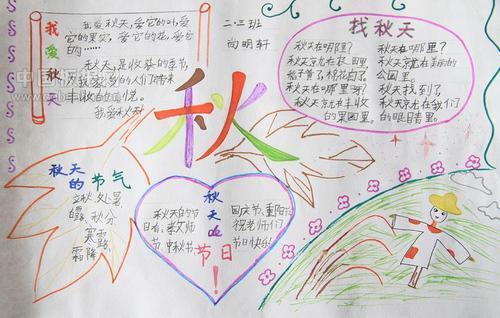 我爱秋天
我爱秋天,爱它的叶,爱
它的果实,爱它的花,爱它
的……
秋天,是收获的季节,
丰收的喜悦。
我爱秋天!
二.三班
尚明轩
找秋天
秋天在哪里?
秋天就在校田里。
稻子黄了,棉花白了。
秋天在哪里呀?
秋天就在丰收
的果园里。
秋天在哪里?
秋天就在美丽的
公园里。
秋天找到了
秋天就在我们
的眼睛看里。
秋
秋天的节气
立秋、处暑
白露、秋分
寒露
霜降
秋天的节日!
秋天的节
日有:教师
节、中秋节、
国庆节、重阳节。
祝老师们
节日快乐!